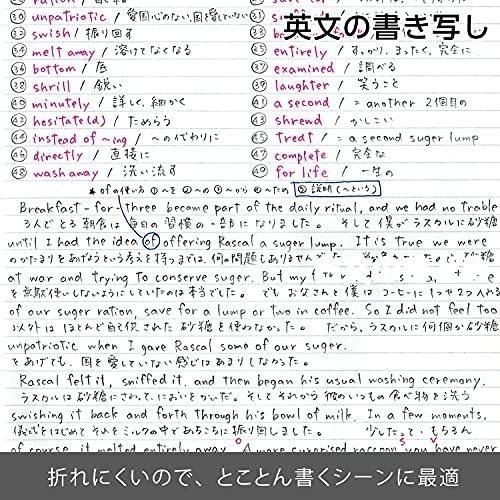 英文の書き写し
30 unpatriotic / 愛国心のない,国を愛していない
32 swish / 振り回す
34 melt away / 溶けてなくなる
35 entirely / すっかり, まったく, 完全に
36 bottom / 底
37 examined / 調べる
38 shrill / 鋭い
39 laughter / 笑うこと
40 minutely / 詳しく, 細かく
41 a second / = another 2個目の
42 hesitate(d) / ためらう
43 shrewd / かしこい
44 instead of ~ing / ~の代わりに
45 treat / = a second suger lump
46 directly / 直接に
47 complete / 完全な
48 wash away / 洗い流す
49 for life / 一生の
* ofの使い方 ①~を ②~の ③~から ④~たの ⑤説明(~という)
Breakfast-for-three became part of the daily ritual, and we had no trable
3人でとる朝食は毎日の習慣の一部になりました。 そして僕がラスカルに砂糖
until I had the idea of offering Rascal a suger lump. It is true we were
のかたまりをあげようという考えを持つまでは, 何の問題もありませんでした
at war and trying to conserve suger. But my
を無駄使いしないようにしていたのは本当でした。 でもお父さんも僕は コーヒーに1つや2つ入れる
of our suger ration, save for a lump or two in coffee. So I did not feel too
以外は ほとんど自て供された砂糖を使わなかった。 だから, ラスカルに何個か砂糖
unpatriotic when I gave Rascal some of our suger.
をあげても, 国を愛していない感じはあまりしなかった。
Rascal felt it, sniffed it, and then began his usual washing ceremony.
ラスカルは砂糖にさわって, においをかいだ。そしてそれから彼のいつもの食べ物を洗う
swishing it back and forth through his bowl of milk. In a few moments,
儀式をはじめてそれをミルクの中であちこちに振り回しました。 少したって, もちろん
of course, it melted entirely away. A more surprised raccoon you have never
折れにくいので、とことん書くシーンに最適